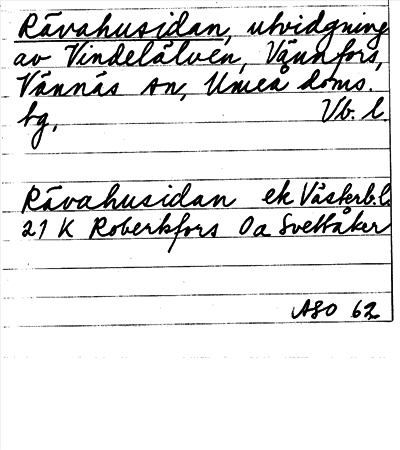 Rävahusidan, utvidgning
av Vindelälven, Vännfors,
Vännäs sn, Umeå doms.
bg, Vb. l.
Rävahusidan ek Västerb.l.
21 K Robertsfors 0a Svettåker
ASO 62